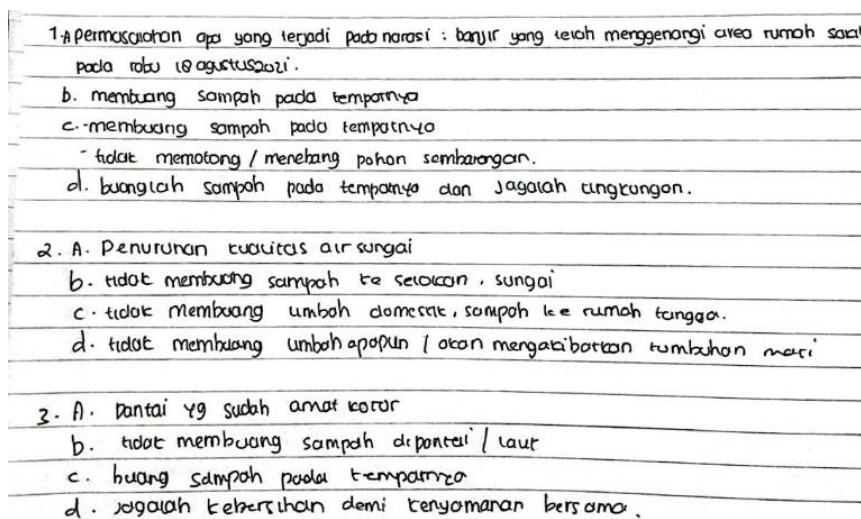 1. A permasalahan apa yang terjadi pada narasi : banjir yang telah menggenangi area rumah
pada rabu 18 agustus 2021.
b. membuang sampah pada tempatnya
c. - membuang sampah pada tempatnya
- tidak memotong / menebang pohon sembarangan.
d. buanglah sampah pada tempatnya dan jagalah lingkungan.
2. A. Penurunan kualitas air sungai
b. tidak membuang sampah ke selokan, sungai
c. tidak membuang limbah domestik, sampah ke rumah tangga.
d. tidak membuang limbah apapun / akan mengakibatkan tumbuhan mati
3. A. Pantai yg sudah amat kotor
b. tidak membuang sampah dipantai / laut
c. buang sampah pada tempatnya
d. jagalah kebersihan demi kenyamanan bersama.